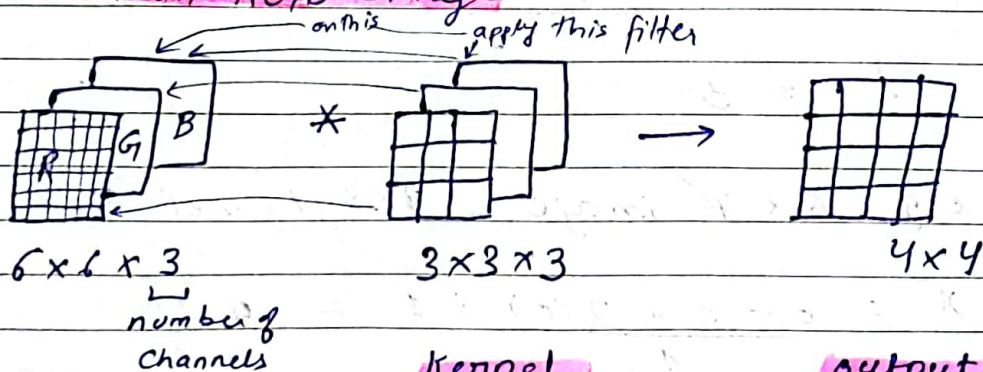 on this apply this filter
R G B * →
6 x 6 x 3 3 x 3 x 3 4 x 4
number of
Channels Kernel output